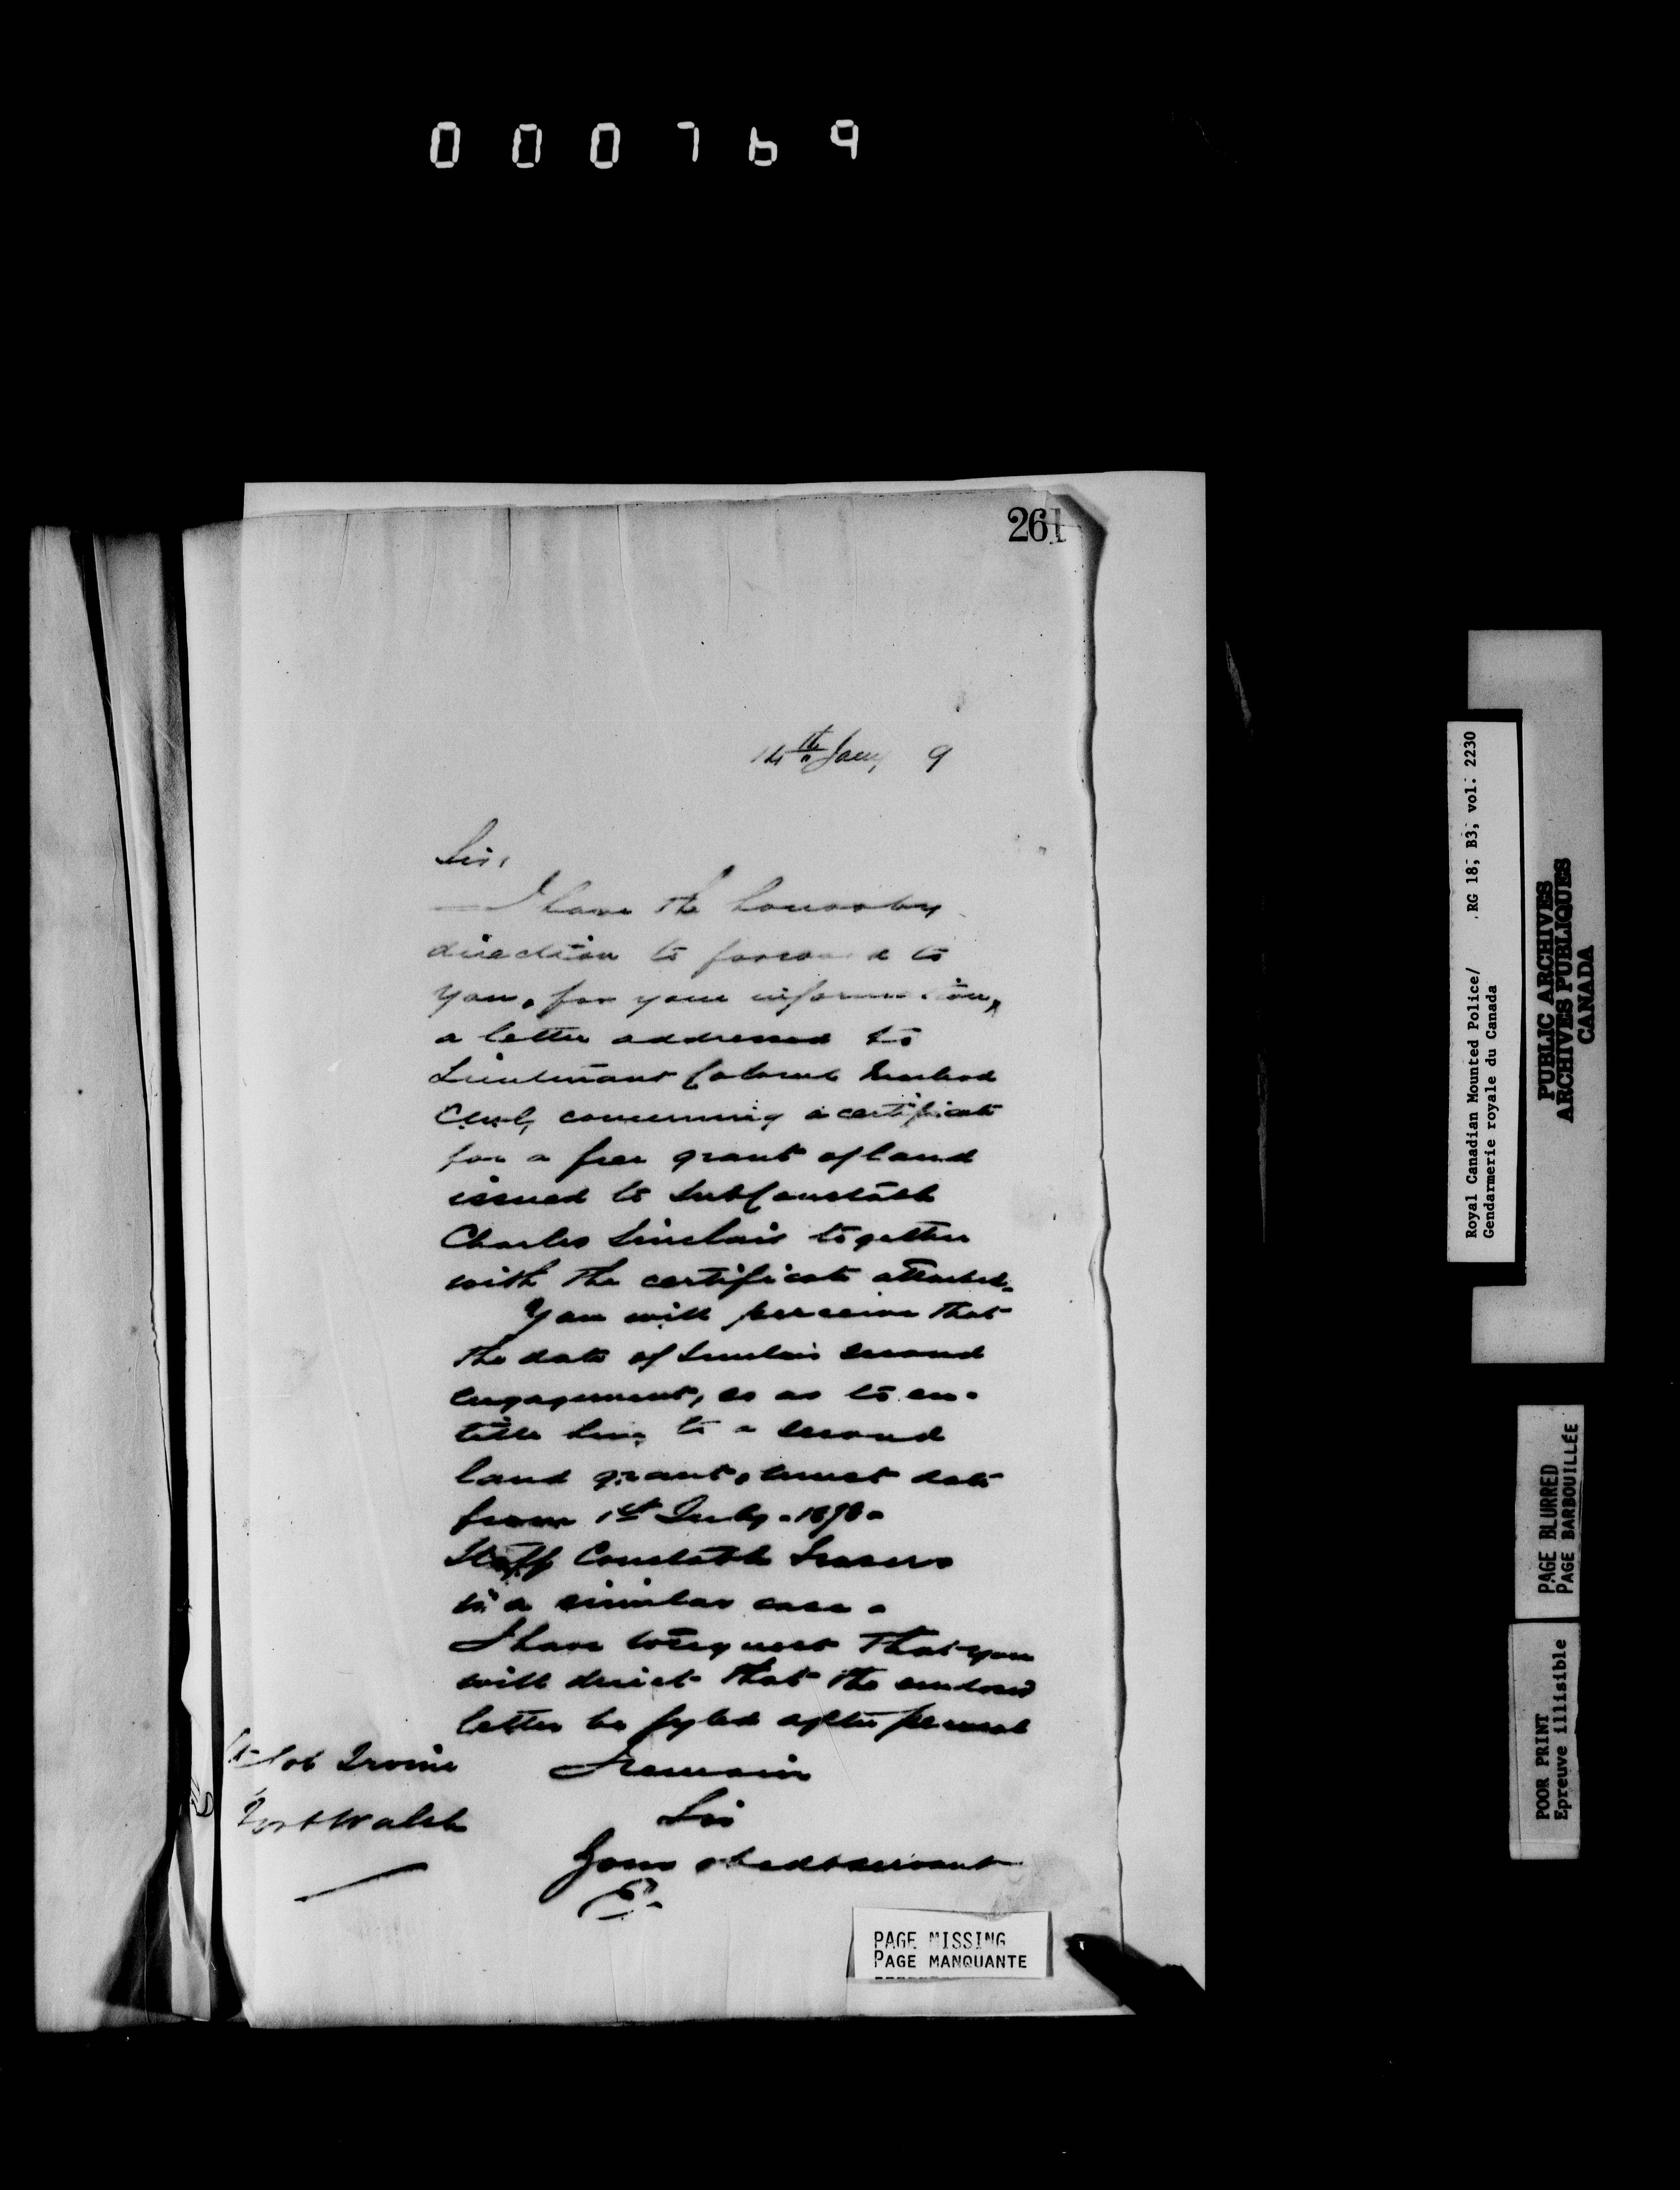 000769
261
14th Jany 9
Sir,
I have the honor by
direction to forward to
you, for your information,
a letter addressed to
Lieutenant Colonel Macleod
C.M.G. concerning a certificate
for a free grant of land
issued to Sub Constable
Charles Sinclair together
with the certificate attached.
You will perceive that
the date of Sinclair's second
engagement, so as to en-
title him to a second
land grant, must date
from 1st July 1878.
Staff Constable Frasers
is a similar case.
I have to request that you
will direct that the enclosed
letter be fyled after perusal
I remain
Sir
Your obedt servant
Lt Col Irvine
Fort Walsh
PAGE MISSING
PAGE MANQUANTE
Royal Canadian Mounted Police/ RG 18, B3, vol. 2230
Gendarmerie royale du Canada
PUBLIC ARCHIVES
ARCHIVES PUBLIQUES
CANADA
PAGE BLURRED
PAGE BARBOUILLÉE
POOR PRINT
Epreuve illisible